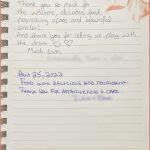 Thank you so much for
the welcome, delicious food,
nourishing space and beautiful
smiles!
And thank you for letting us play with
the drum ♡
Much love,
Aug 25, 2022
Food was delicious and nourishing
Thank you for attentiveness & care